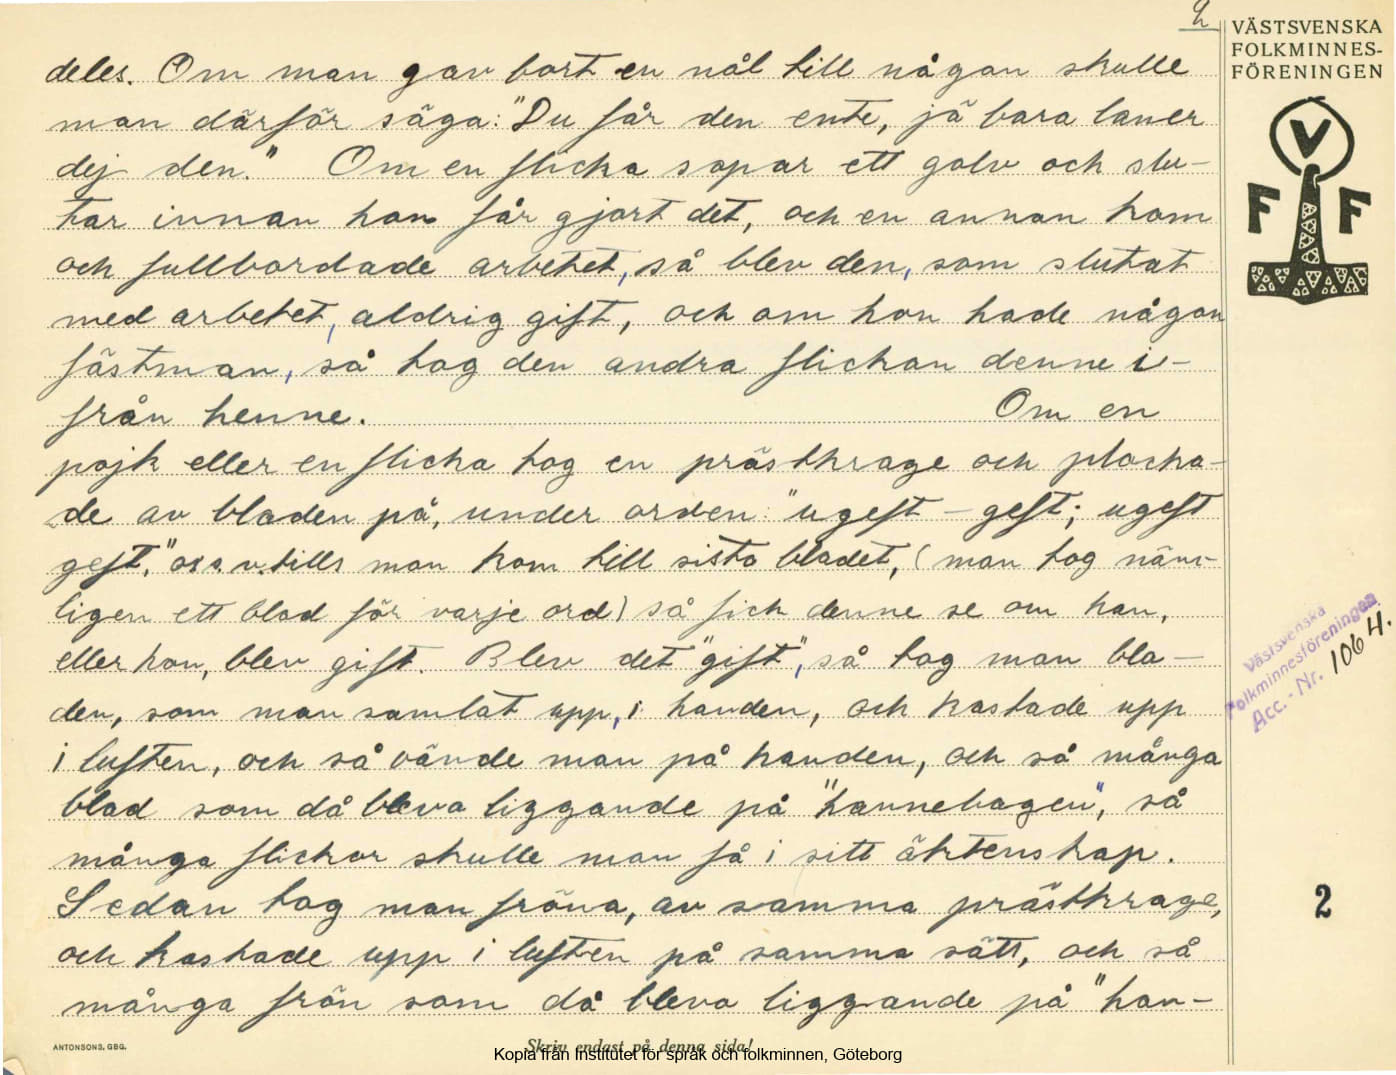 2
VÄSTSVENSKA
FOLKMINNES-
FÖRENINGEN
V
F F
deles. Om man gav bort en nål till någon skulle
man därför säga: "Du får den ente, jä bara laner
dej den." Om en flicka sopar ett golv och slu-
tar innan hon får gjort det, och en annan kom
och fullbordade arbetet, så blev den, som slutat
med arbetet, aldrig gift, och om hon hade någon
fästman, så tog den andra flickan denne i-
från henne. Om en
pojk eller en flicka tog en prästkrage och plocka-
de av bladen på, under orden: "ugeft - geft; ugeft
geft," o s v. tills man kom till sista bladet, (man tog näm-
ligen ett blad för varje ord) så fick denne se om han,
eller hon, blev gift. Blev det "gift", så tog man bla-
den, som man samlat upp, i handen, och kastade upp
i luften, och så vände man på handen, och så många
blad som då bleva liggande på "hannebagen", så
många flickor skulle man få i sitt äktenskap.
Sedan tog man fröna, av samma prästkrage,
och kastade upp i luften på samma sätt, och så
många frön som då bleva liggande på "han-
Västsvenska
Folkminnesföreningen
Acc. - Nr. 1064.
2
ANTONSONS, GBG.
Skriv endast på denna sida!
Kopia från Institutet för språk och folkminnen, Göteborg